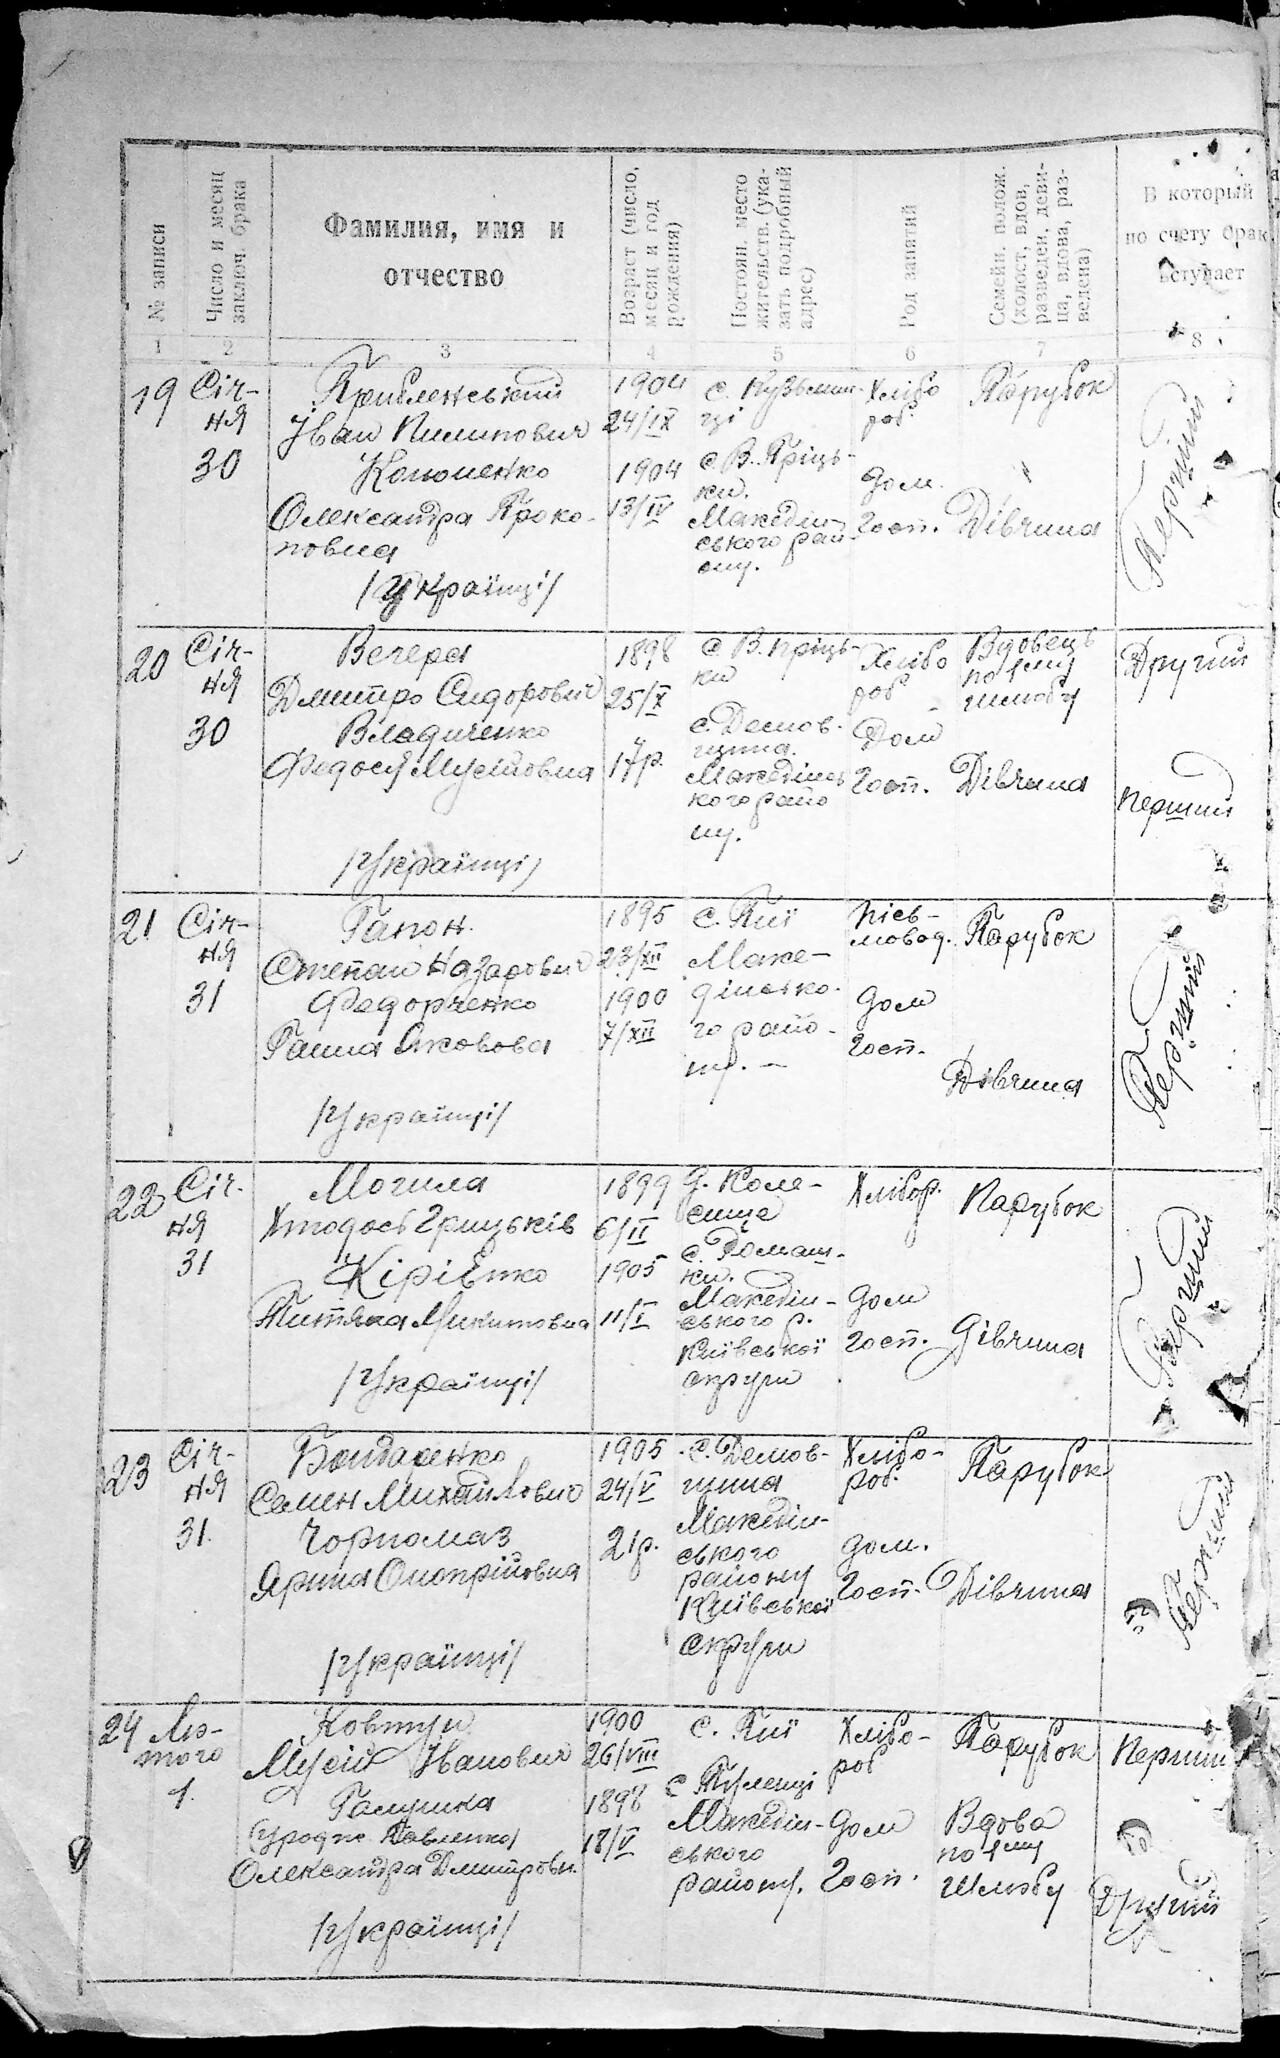 № записи
Число и месяц заключ. брака
Фамилия, имя и
отчество
Возраст (число, месяц и год рождения)
Постоян. место жительств. (указать подробный адрес)
Род занятий
Семейн. полож. (холост, вдов, разведен, девица, вдова, разведена)
В который
по счету брак
вступает
1 2 3 4 5 6 7 8
19
Січ-
ня
30
Іван Пилипович
Кононенко
Олександра Проко-
повна
/Українці/
1904
24/IX
1904
13/IV
с. Кузьмин-
ці
с. В. Пріць-
ки.
Македін-
ського рай-
ону.
Хлібо
роб
Дом.
Госп.
Парубок
"
Дівчина
Перший
20
Січ-
ня
30
Вечеря
Дмитро Сидорович
Владиченко
Федося Мусіовна
/Українці/
1898
25/X
17р.
с. В. Пріць-
ки
с. Демов-
щина.
Македінсь
кого райо
ну.
Хлібо
роб
Дом
Госп.
Вдовець
по 1му
шлюбу
Дівчина
Другий
Перший
21
Січ-
ня
31
Гапон.
Степан Назарович
Федорченко
Ганна Яковова
/Українці/
1895
23/XII
1900
7/XII
с. Пиї
Маке-
дінсько-
го райо-
ну. —
Пісь-
мовод.
Дом
Госп.
Парубок
Дівчина
Перший
22
Січ.
ня
31
Могила
Хтодось Грицьків
Кірієнко
Титяна Микитовна
/Українці/
1899
6/II
1905
11/I
д. Коле-
сище
с. Ромаш-
ки.
Македін-
ського р.
Київської
округи
Хлібор.
Дом
Госп.
Парубок
Дівчина
Перший
23
Січ-
ня
31.
Бондаренко
Семен Михайлович
Чорномаз
Ярина Онопрійовна
/Українці/
1905
24/V
21р.
с. Демов-
щина
Македін-
ського
району
Київської
округи
Хлібо-
роб.
Дом.
Госп.
Парубок
Дівчина
Перший
24
Лю-
того
1.
Ковтун
Мусій Іванович
Галушка
Олександра Дмитровн.
/Українці/
1900
26/VIII
1898
18/V
с. Пиї
с Туленці
Македін-
ського
району.
Хлібо-
роб
Дом
Госп.
Парубок
Вдова
по 1му
шлюбу
Перший
Другий